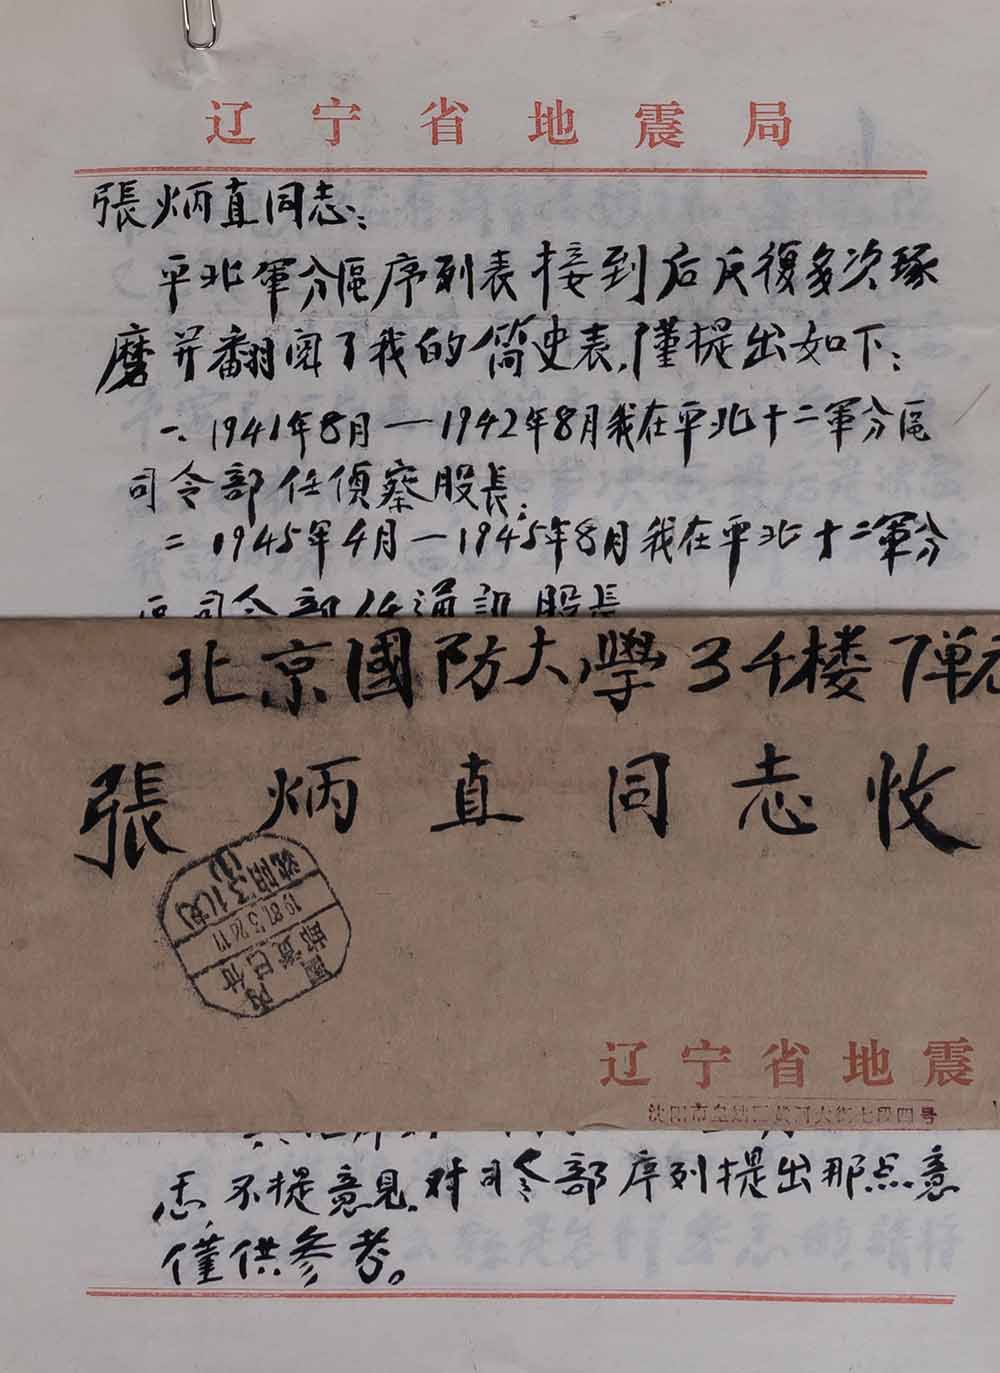 辽宁省地震局
張炳直同志：
平北軍分區序列表接到后反復多次琢
磨并翻阅了我的简史表，僅提出如下：
一、1941年8月—1942年8月我在平北十二軍分區
司令部任偵察股長；
二 1945年4月—1945年8月我在平北十二軍分
區司令部任通訊股長
北京國防大學3千楼7單元
張炳直同志收
沈阳
1987.5.26.17
國内
邮資已付
辽宁省地震
沈阳市皇姑区黄河大街七段四号
志不提意見，对司令部序列提出那点意
僅供參考。